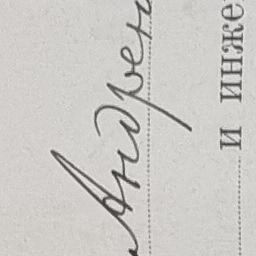 Андрен
и инже